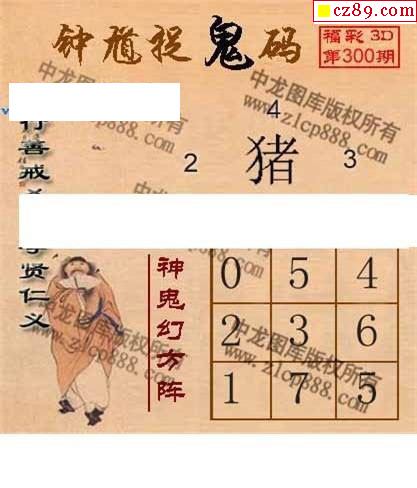 cz89.com
钟馗捉鬼码
福彩 3D
第300期
中龙图库版权所有
www.zlcp888.com
4
2
猪
3
善戒
贤仁义
人
神鬼幻方阵
0 5 4
2 3 6
1 7 5
中龙图库版权所有
www.zlcp888.com